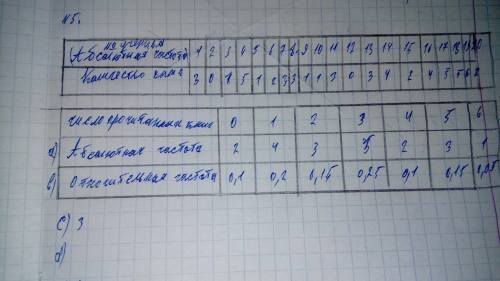 №5.
№ ученика 1 2 3 4 5 6 7 8 9 10 11 12 13 14 15 16 17 18 19 20
(Абсолютная частота)
Количество книг 3 0 1 5 1 2 3 3 1 1 3 0 3 4 2 4 5 5 6
число прочитанных книг 0 1 2 3 4 5 6
a) Абсолютная частота 2 4 3 5 2 3 1
b) Относительная частота 0,1 0,2 0,15 0,25 0,1 0,15 0,05
c) 3
d)